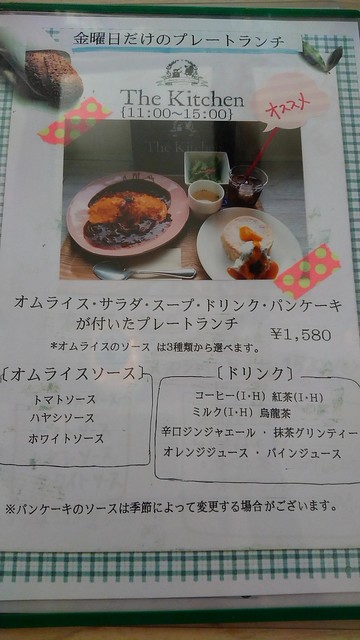 金曜日だけのプレートランチ
The Kitchen
{11:00～15:00}
オススメ
The Kitchen
オムライス・サラダ・スープ・ドリンク・パンケーキ
が付いたプレートランチ
￥1,580
*オムライスのソース は3種類から選べます。
〔オムライスソース〕
トマトソース
ハヤシソース
ホワイトソース
〔ドリンク〕
コーヒー(I・H) 紅茶(I・H)
ミルク(I・H) 烏龍茶
辛口ジンジャエール ・ 抹茶グリンティー
オレンジジュース ・ パインジュース
※パンケーキのソースは季節によって変更する場合がございます。